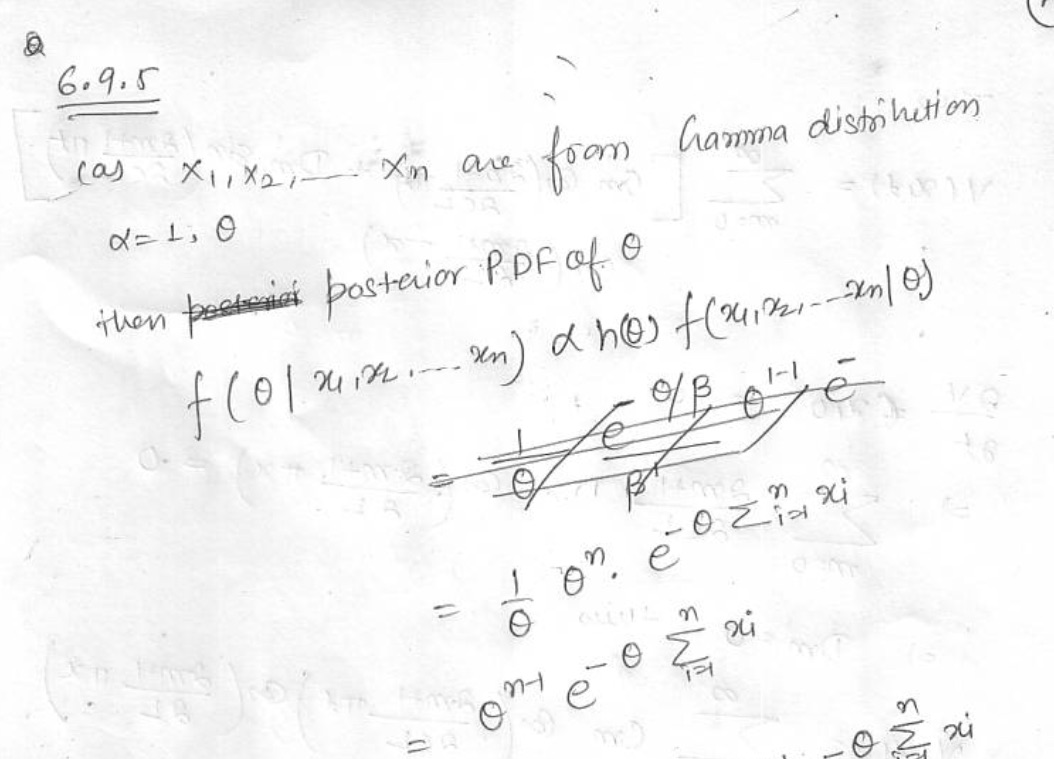 Q
6.9.5
(a) X₁, X₂, .... Xₙ are from Gamma distribution
α = 1, θ
then posterior PDF of θ
f(θ | x₁, x₂, .... xₙ) ∝ h(θ) f(x₁, x₂, .... xₙ | θ)
= 1/θ θⁿ . e^{-θ Σ_{i=1}^{n} xi}
= θ^{n-1} e^{-θ Σ_{i=1}^{n} xi}
-θ Σ_{i=1}^{n} xi